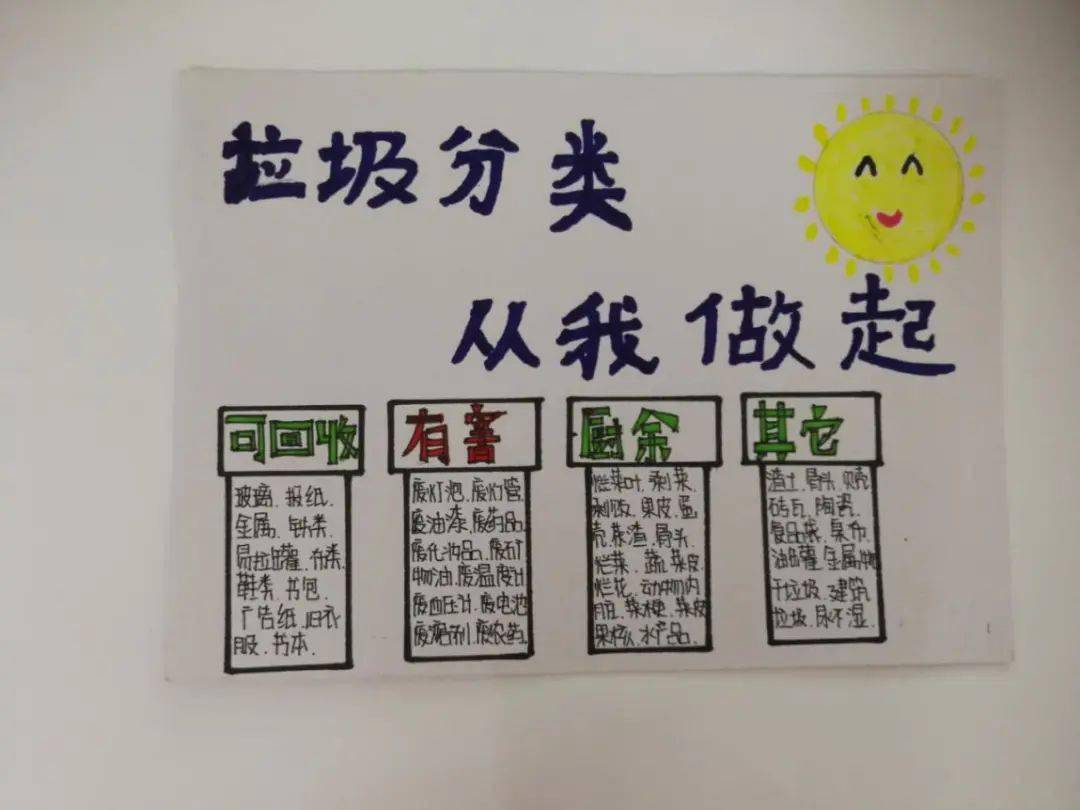 垃圾分类
从我做起
可回收
玻璃、报纸、
金属、铁类、
易拉罐、布类、
鞋类、书包、
广告纸、旧衣
服、书本、
有害
废灯泡、废灯管、
废油漆、废药品、
废化妆品、废矿
物油、废温度计
废血压计、废电池
废溶剂、废农药、
厨余
烂菜叶、剩菜、
剩饭、果皮、蛋
壳、茶渣、骨头、
烂菜、蔬菜皮、
烂花、动物内
脏、菜梗、菜皮
果核、水产品、
其它
渣土、骨头、贝壳
砖瓦、陶瓷、
食品袋、桌布、
油罐、金属物
干垃圾、建筑
垃圾、尿不湿、